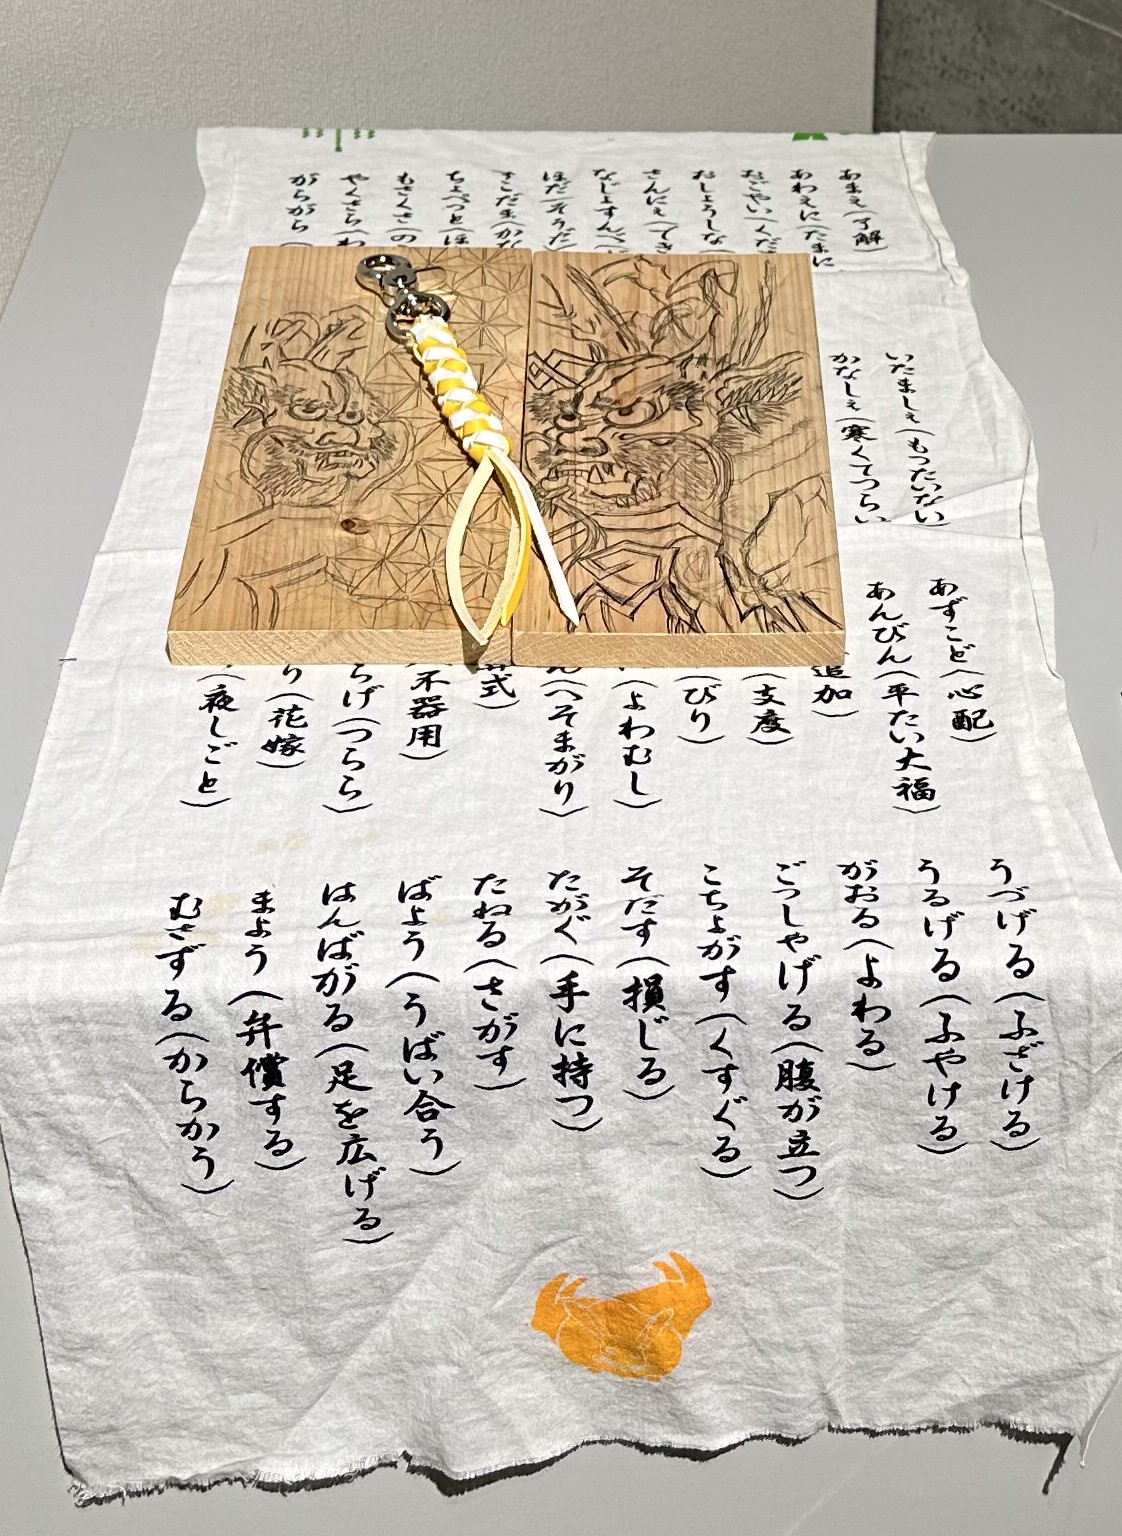 あまぇ(了解)
あわえに(たまに
おごやい(くだ
おしょうしな(
さんにぇ(でき
なじょすんべ(
ほだ(そうだ)
そこだま(かな
ちょべっと(ほ
もさくさ(の
やくさら(わ
がらがら(
いたましぇ(もったいない)
かなしぇ(寒くてつらい
あずこど(心配)
あんびん(平たい大福)
追加)
(支度)
(びり)
(よわむし)
ん(へそまがり)
式)
不器用)
らげ(つらら)
り(花嫁)
(夜しごと)
うづげる(ふざける)
うるげる(ふやける)
がおる(よわる)
ごっしゃげる(腹が立つ)
こちょがす(くすぐる)
そだす(損じる)
たがぐ(手に持つ)
たねる(さがす)
ばよう(うばい合う)
はんばがる(足を広げる)
まよう(弁償する)
むさずる(からかう)